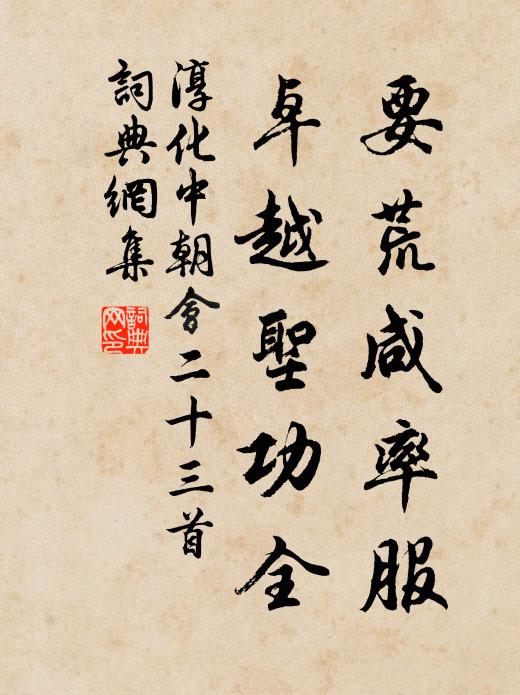 要荒咸率服
卓越聖功全
淳化中朝會二十三首
詞典網集
詞典网印